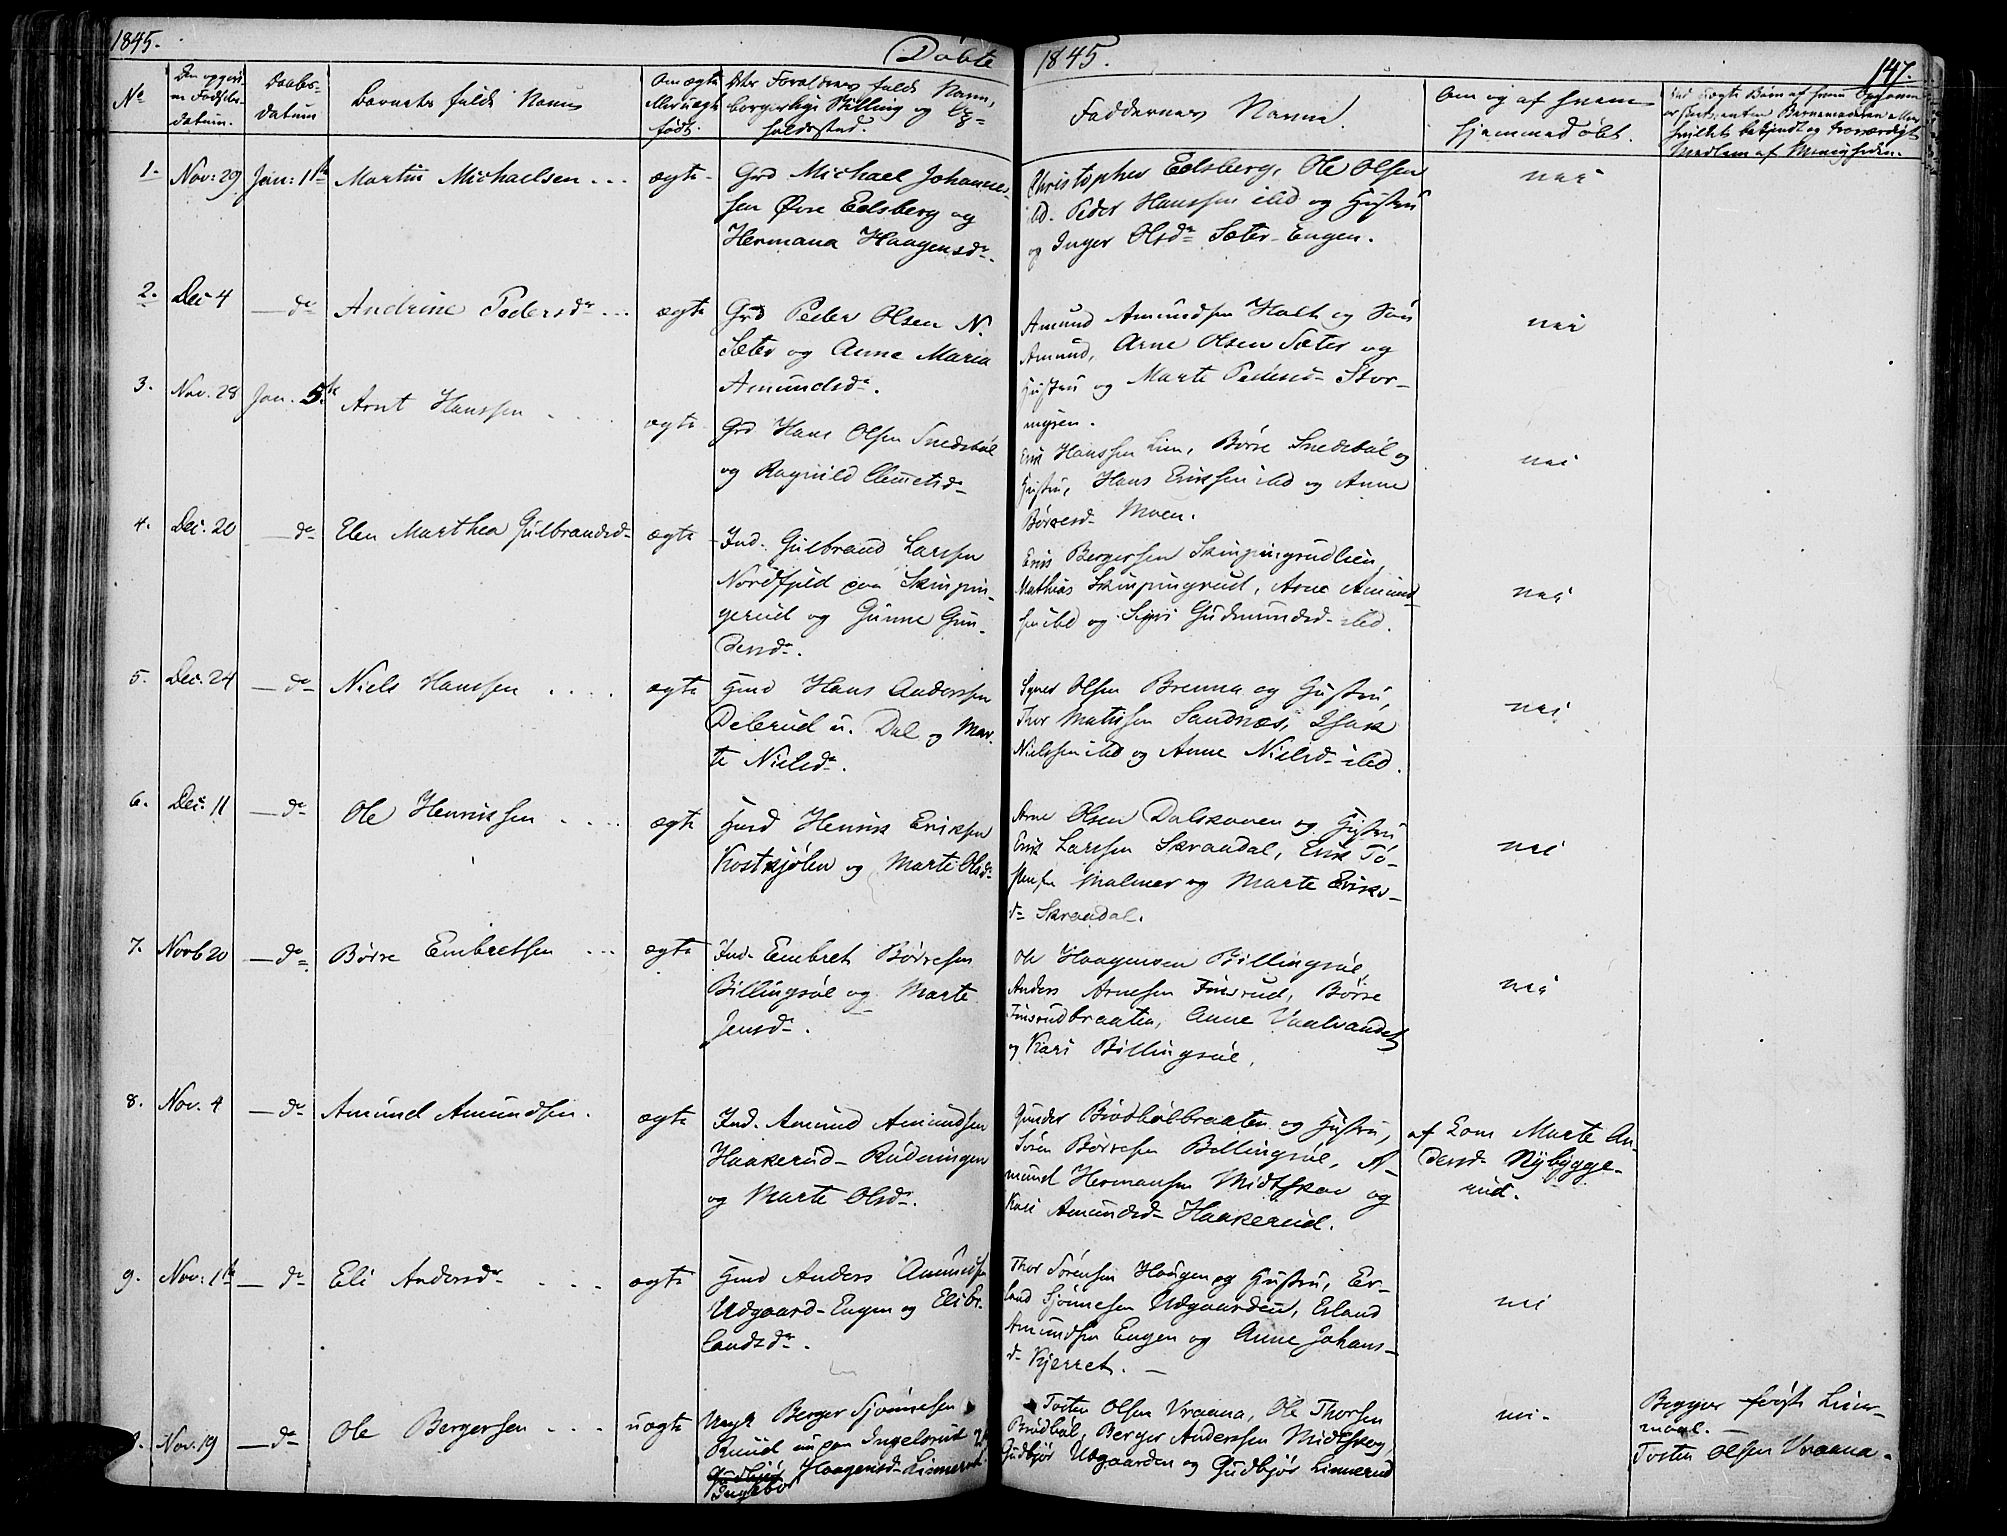 1845.
Døbte
1845.
147.
No
Daabs-
datum
Barnets fulde Navn
Om ægte
eller uægte
født.
Forældres fulde Navn,
borgerlige Stilling og
Faddernes Navne.
Om og af hvem
hjemmedøbt.
Medlem af Menigheden.
1.
Nov: 29
Jan: 1ste
Martin Michaelsen
ægte
Grd Michael Johanne-
sen Øvre Eelsberg og
Hermana Haagensdr.
Christopher Eelsberg, Ole Olsen
ibd. Peder Hanssen ibd og Hustru
og Inger Olsdr Sæter-Engen.
nei
2.
Dec 4
do
Andrine Pedersdr
ægte
Grd Peder Olsen N.
Sæter og Anne Maria
Amundsdr.
Amund Amundsen Holt og Søn
Amund, Arne Olsen Sæter og
Hustru og Marte Pedersd Stor-
myren.
nei
3.
Nov. 28
Jan. 5te
Arnt Hanssen
ægte
Grd Hans Olsen Snedsbøl
og Ragnild Clemetsdr
Erik Hanssen Lien, Børre Snedsbøl og
Hustru, Hans Erikssen ibd og Anne
Børresd Moen.
nei
4.
Dec. 20
do
Elen Marthea Gulbrandsd
ægte
Ind. Gulbrand Larssen
Nordfjeld paa Skinpin-
gerud og Gunne Gun-
dersdr.
Erik Bergersen Skinpingrudlien
Mathias Skinpingrud, Arne Amund-
sen ibd og Sigri Gudmundsd ibd.
nei
5.
Dec. 24
do
Niels Hanssen
ægte
Hmd Hans Anderssen
Delerud u. Dal og Mar-
te Nielsdr.
Syver Olsen Brenna og Hustru,
Thor Matissen Sandnæs, Isak
Nielssen ibd og Anne Nielsd ibd.
nei
6.
Dec. 11
do
Ole Henrikssen
ægte
Hmd Henrik Eriksen
Kostkjølen og Marte Olsdr
Arne Olsen Dalskaven og Hustru
Erik Larssen Skrandal, Erik To-
stensen Malmer og Marte Eriks-
dr Skrandal.
nei
7.
Novb 20
do
Børre Embretsen
ægte
Ind. Embret Børresen
Billingsøl og Marte
Jensdr.
Ole Haagensen Billingsøl,
Anders Arnesen Finsrud, Børre
Finsrudbraaten, Anne Vaalvandet
og Kari Billingsøl.
nei
8.
Nov. 4
do
Amund Amundsen.
ægte
Ind. Amund Amundsen
Haakerud-Rudningen
og Marte Olsdr.
Gunder Brødbølbraaten og Hustru,
Søren Børresen Billingsøl, A-
mund Hermansen Midtskov og
Kari Amundsd Haakerud.
af Com Marte An-
dersd Nybygge-
rud.
9.
Nov: 1ste
do
Eli Andersdr
ægte
Hmd Anders Amundsen
Udgaard-Engen og Eli Er-
landsdr.
Thor Sørensen Haugen og Hustru, Er-
land Sjønnesen Udgaarden, Erland
Amundsen Engen og Anne Johans-
dr Kjerret.
nei
Nov. 19
do
Ole Bergersen
uægte
Ungk Berger Sjønnesen
Ruud nu paa Ingelsrud
Gudbjør Haagensd Linnerud
Ingebor
Tosten Olsen Vraana, Ole Thorsen
Brødbøl, Berger Anderssen Midtskog,
Gudbjør Udgaarden og Gudbjør Linnerud
nei.
Begges første Leier-
maal.
Tosten Olsen Vraana.